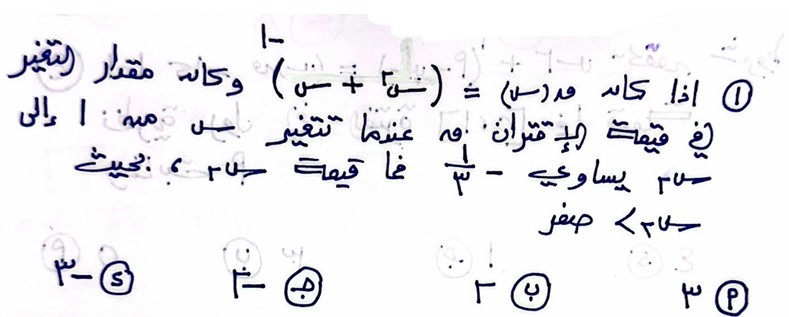 ① اذا كان ق(س) = (س٢ + س)-١ وكان مقدار التغير
في قيمة الإقتران ق عندما تتغير س من ١ إلى
س٢ يساوي -١/٣ فما قيمة س٢ ، بحيث
س٢ > صفر
Ⓟ ٣ ⓑ ٢ ⓙ -٢ ⓓ -٣